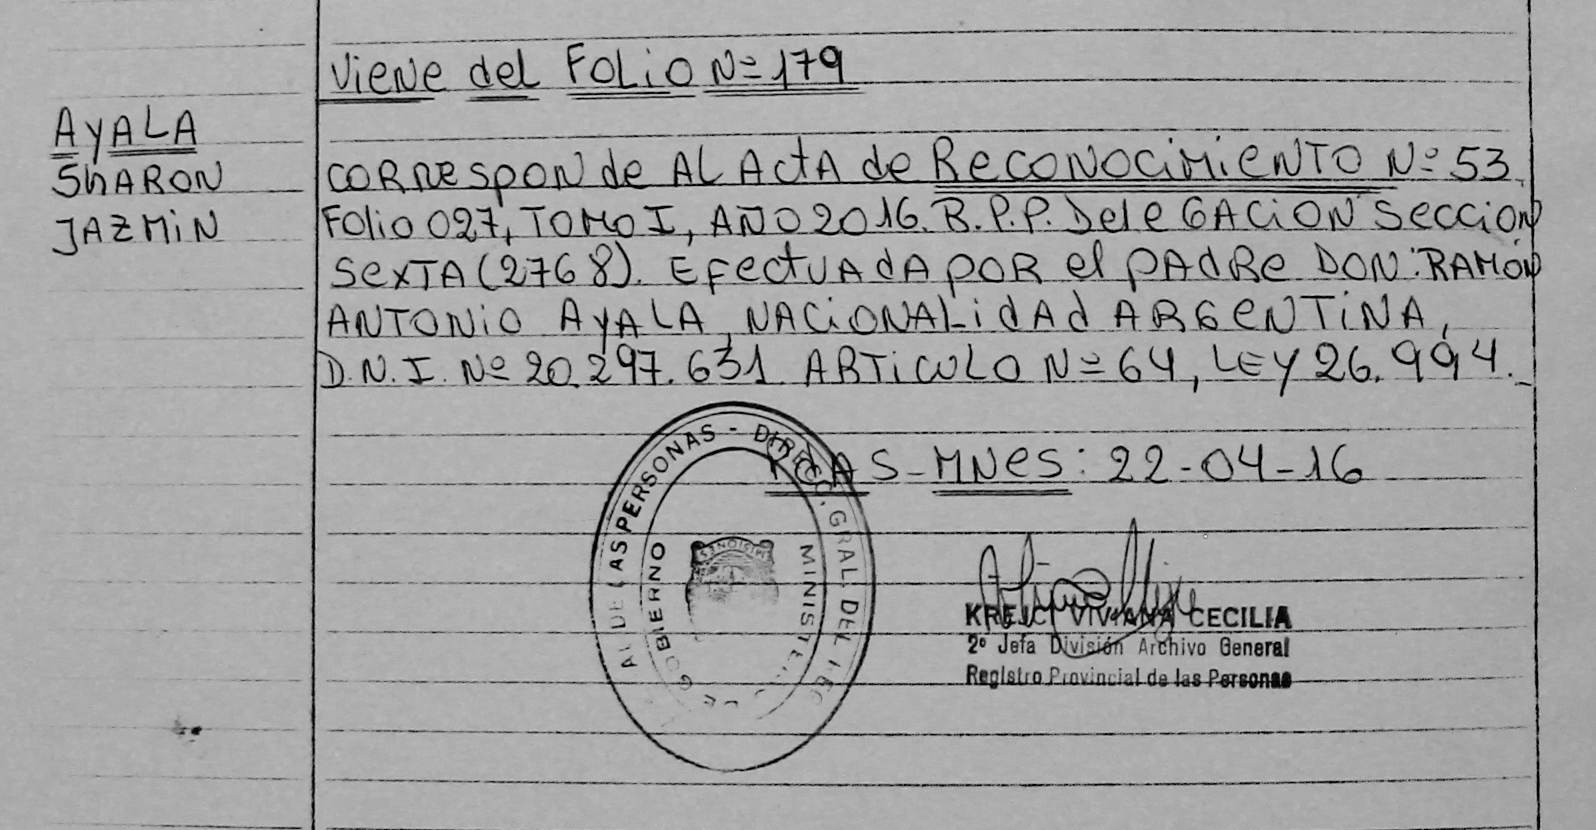 Viene del Folio Nº 179
AyALA
SHARON
JAZMIN
CORRESponde AL ActA de RECONOCIMIENTO Nº 53,
Folio 027, TOMO I, AÑO 2016. R.P.P. DeleGACION Seccion
SexTA (2768). EfectUAdA pOR el pAdRe DON: RAMÓN
ANTONIO AyALA, NACIONALidAd ARGENTINA,
D.N.I. Nº 20.297.631. ARTICULO Nº 64, LEY 26.994.
S-MNES: 22-04-16
DE LAS PERSONAS - DIRECC. GRAL. DEL REG
MINISTE DE GOBIERNO
MISIONES
KREJCI VIVIANA CECILIA
2º Jefa División Archivo General
Registro Provincial de las Personas